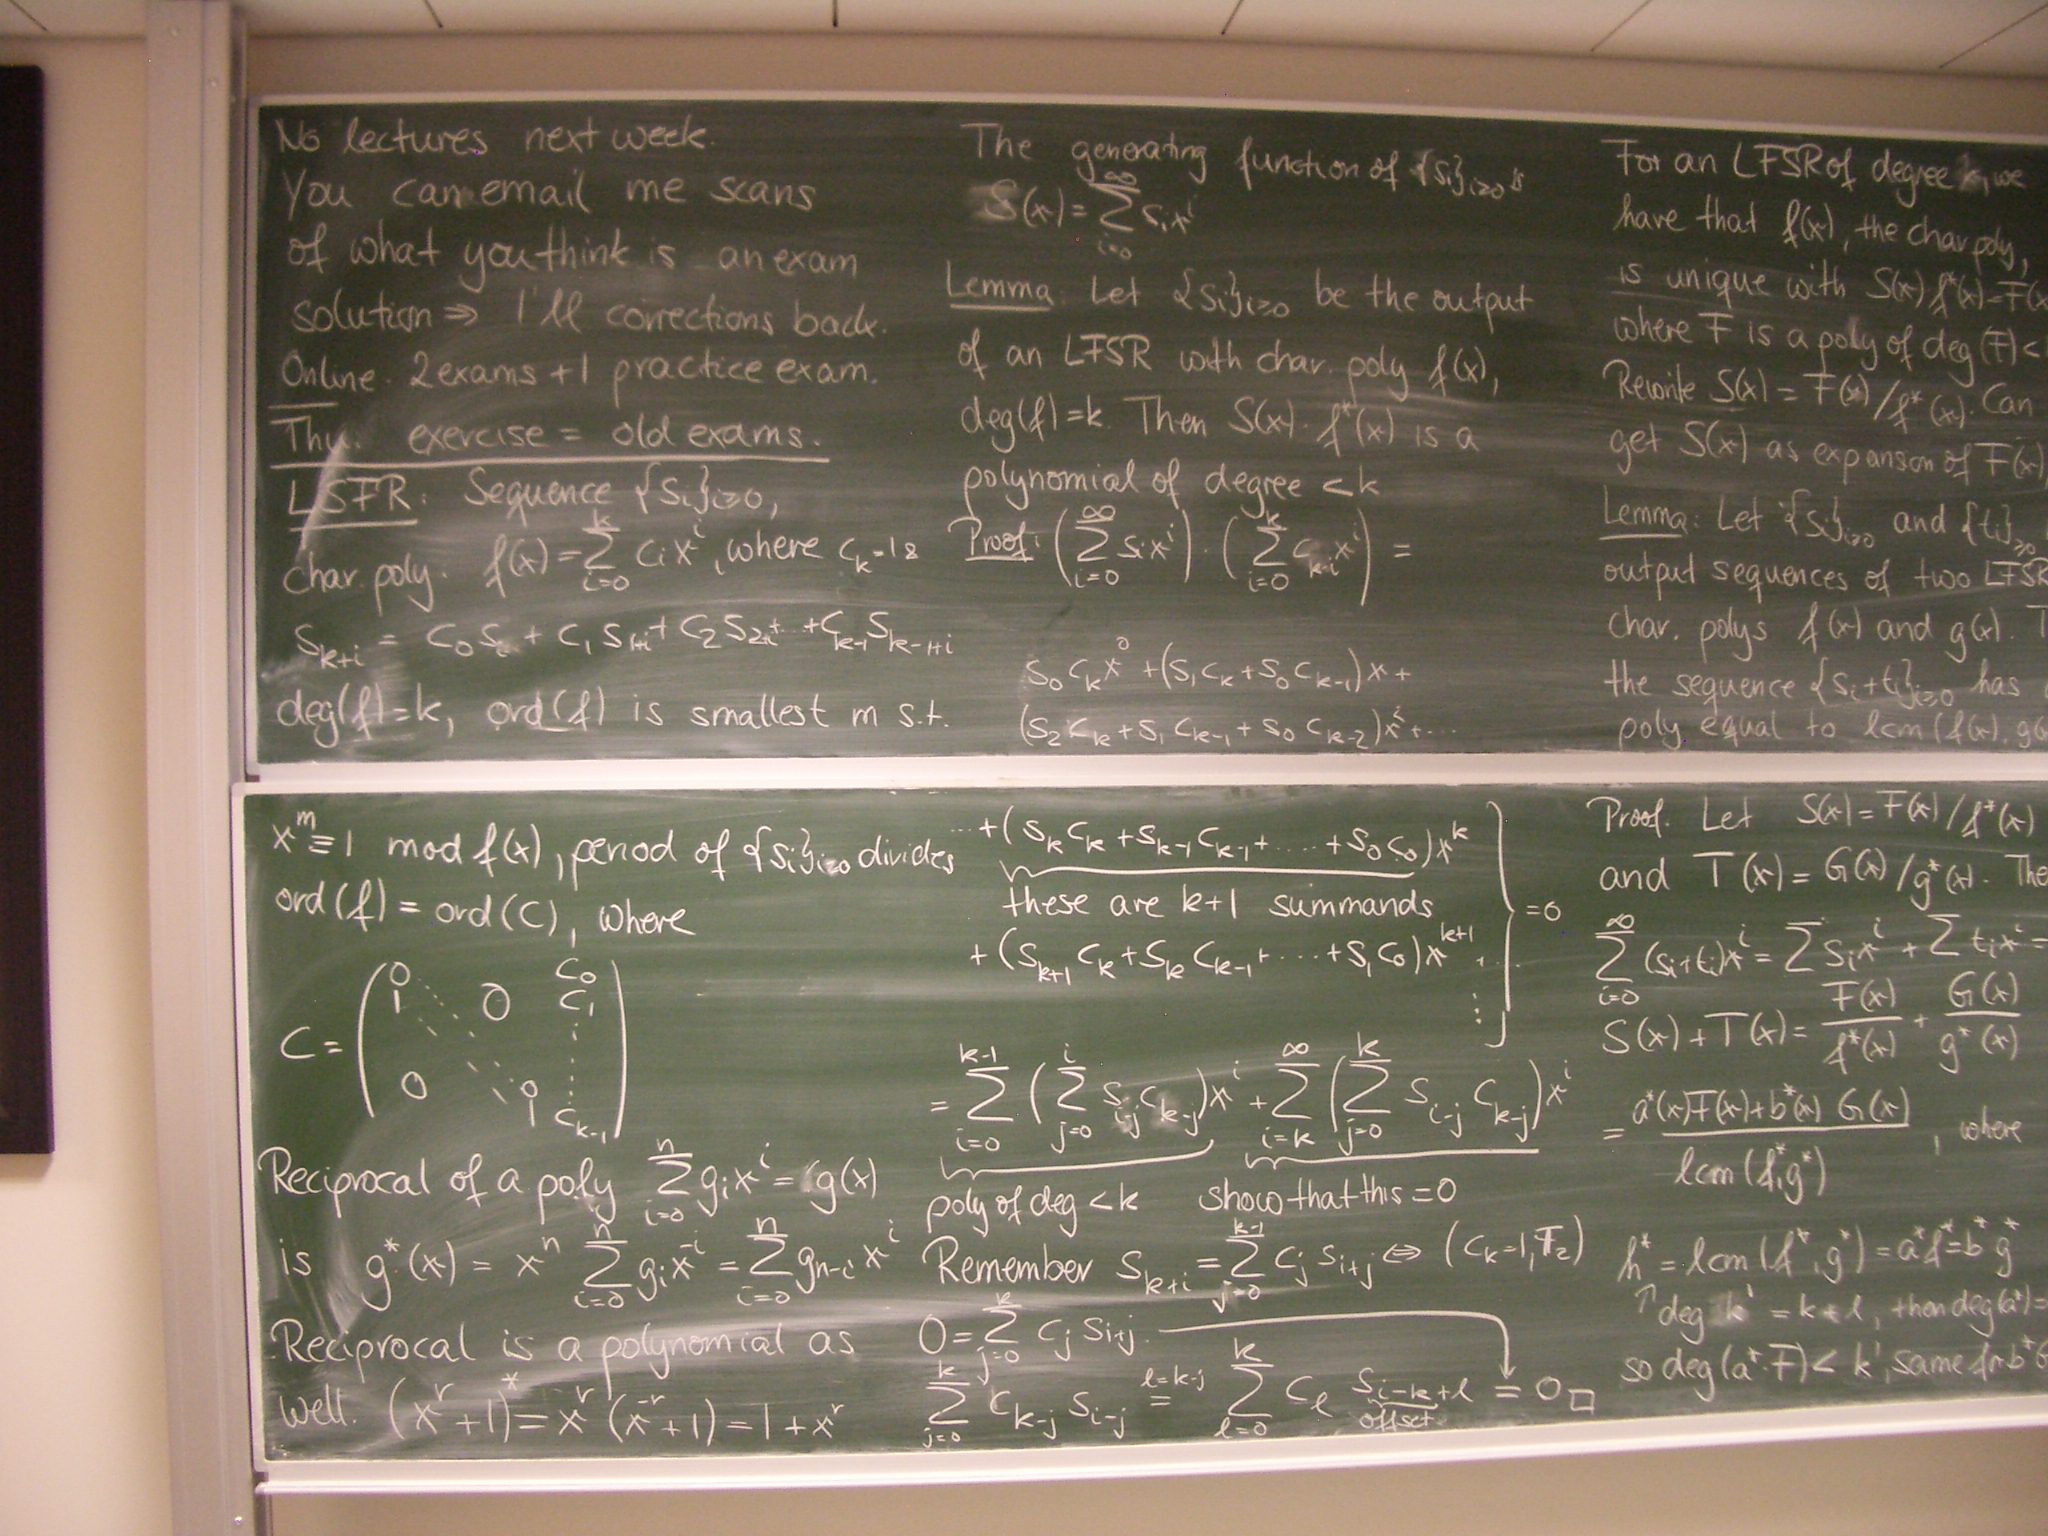 No lectures next week.
You can email me scans
of what you think is an exam
solution ⇒ I'll corrections back.
Online. 2 exams + 1 practice exam.
Thu. exercise = old exams.
LSFR: Sequence {s_i}_{i≥0},
char. poly. f(x) = ∑_{i=0}^{k} c_i x^i, where c_k = 1 &
s_{k+i} = c_0 s_i + c_1 s_{1+i} + c_2 s_{2+i} + … + c_{k-1} s_{k-1+i}
deg(f) = k, ord(f) is smallest m s.t.
x^m ≡ 1 mod f(x), period of {s_i}_{i≥0} divides
ord(f) = ord(C), where
C = ( 0 0 c_0
1 c_1
⋮
0 0
1 c_{k-1} )
Reciprocal of a poly ∑_{i=0}^{n} g_i x^i = g(x)
is g*(x) = x^n ∑_{i=0}^{n} g_i x^{-i} = ∑_{i=0}^{n} g_{n-i} x^i
Reciprocal is a polynomial as
well. (x^r + 1)* = x^r (x^{-r} + 1) = 1 + x^r
The generating function of {s_i}_{i≥0} is
S(x) = ∑_{i=0}^{∞} s_i x^i
Lemma: Let {s_i}_{i≥0} be the output
of an LFSR with char. poly f(x),
deg(f) = k. Then S(x) · f*(x) is a
polynomial of degree < k
Proof: (∑_{i=0}^{∞} s_i x^i) · (∑_{i=0}^{k} c_{k-i} x^i) =
s_0 c_k x^0 + (s_1 c_k + s_0 c_{k-1}) x +
(s_2 c_k + s_1 c_{k-1} + s_0 c_{k-2}) x^2 + …
… + (s_k c_k + s_{k-1} c_{k-1} + … + s_0 c_0) x^k
these are k+1 summands
= 0
+ (s_{k+1} c_k + s_k c_{k-1} + … + s_1 c_0) x^{k+1} + …
⋮
= ∑_{i=0}^{k-1} (∑_{j=0}^{i} s_{i-j} c_{k-j}) x^i + ∑_{i=k}^{∞} (∑_{j=0}^{k} s_{i-j} c_{k-j}) x^i
poly of deg < k show that this = 0
Remember s_{k+i} = ∑_{j=0}^{k-1} c_j s_{i+j} ⇔ (c_k = 1, F_2)
0 = ∑_{j=0}^{k} c_j s_{i+j}.
∑_{j=0}^{k} c_{k-j} s_{i-j} =^{l=k-j} ∑_{l=0}^{k} c_l s_{i-k+l} = 0 □
offset
For an LFSR of degree k, we
have that f(x), the char poly,
is unique with S(x) f*(x) = F(x
where F is a poly of deg(F) <
Rewrite S(x) = F(x)/f*(x). Can
get S(x) as expanson of F(x)
Lemma: Let {s_i}_{i≥0} and {t_i}_{i≥0}
output sequences of two LFSR
char. polys f(x) and g(x).
the sequence {s_i + t_i}_{i≥0} has
poly equal to lcm(f(x), g(
Proof. Let S(x) = F(x)/f*(x)
and T(x) = G(x)/g*(x). The
∑_{i=0}^{∞} (s_i + t_i) x^i = ∑ s_i x^i + ∑ t_i x^i =
S(x) + T(x) = F(x)/f*(x) + G(x)/g*(x)
= (a*(x) F(x) + b*(x) G(x)) / lcm(f*, g*), where
h* = lcm(f*, g*) = a* f* = b* g*
↑ deg k' = k + l, then deg(a*) =
so deg(a* · F) < k', same for b*G